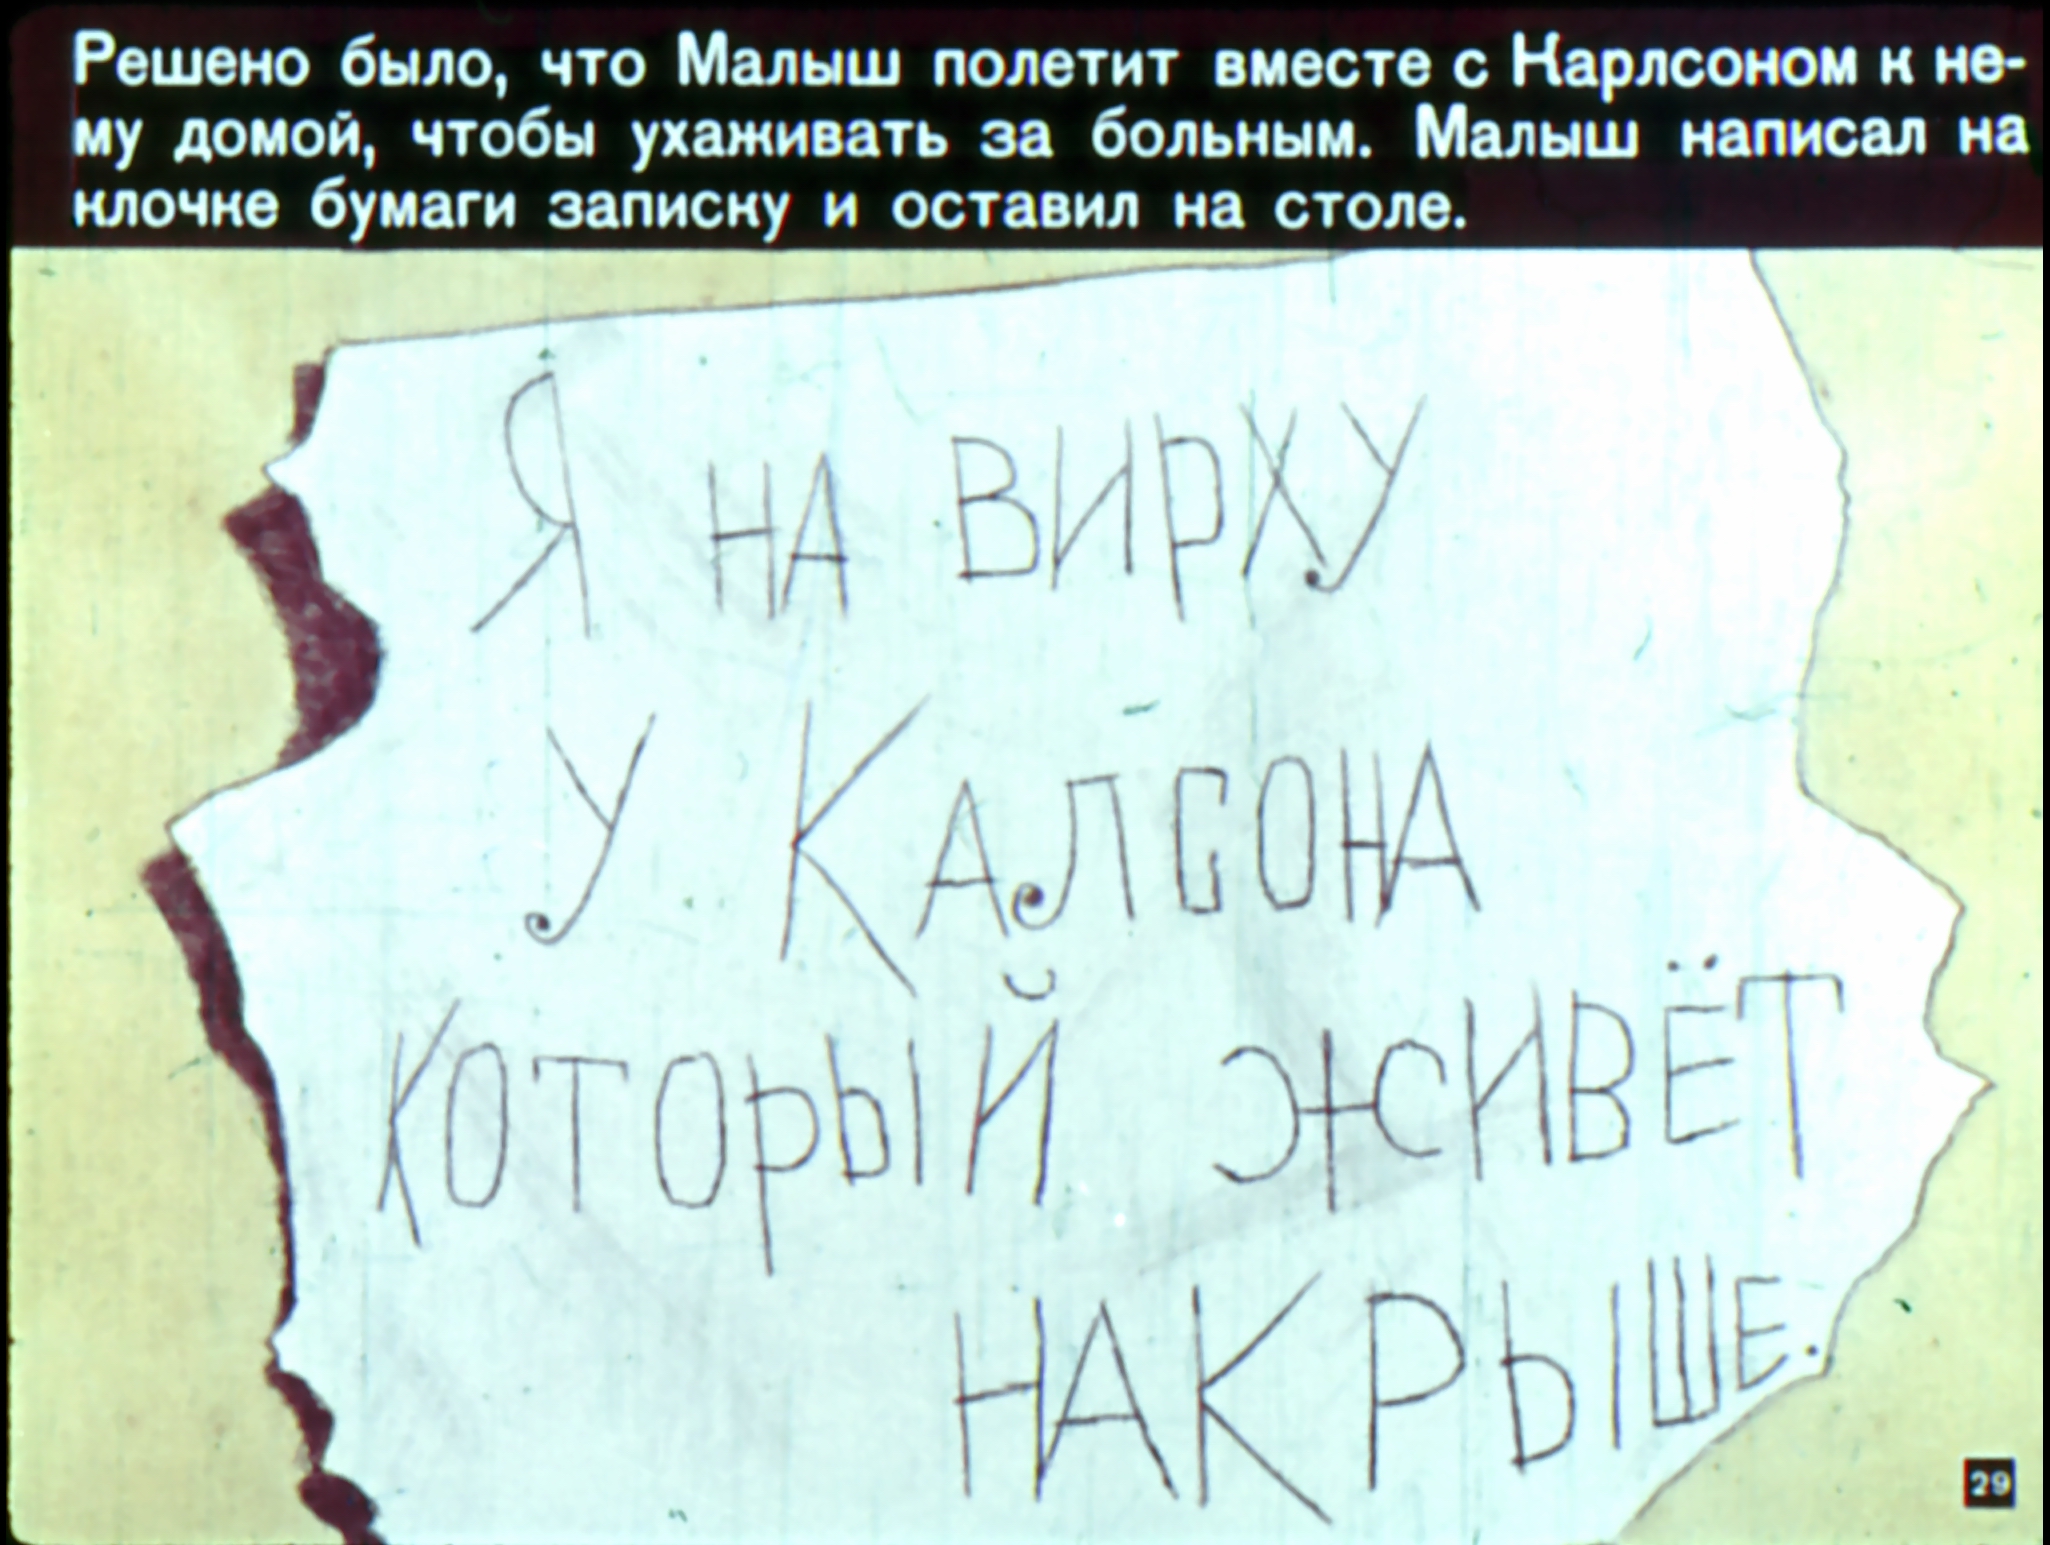 Решено было, что Малыш полетит вместе с Карлсоном к не-
му домой, чтобы ухаживать за больным. Малыш написал на
клочке бумаги записку и оставил на столе.
Я НА ВИРХУ
У КАЛСОНА
КОТОРЫЙ ЖИВЁТ
НАКРЫШЕ.
29